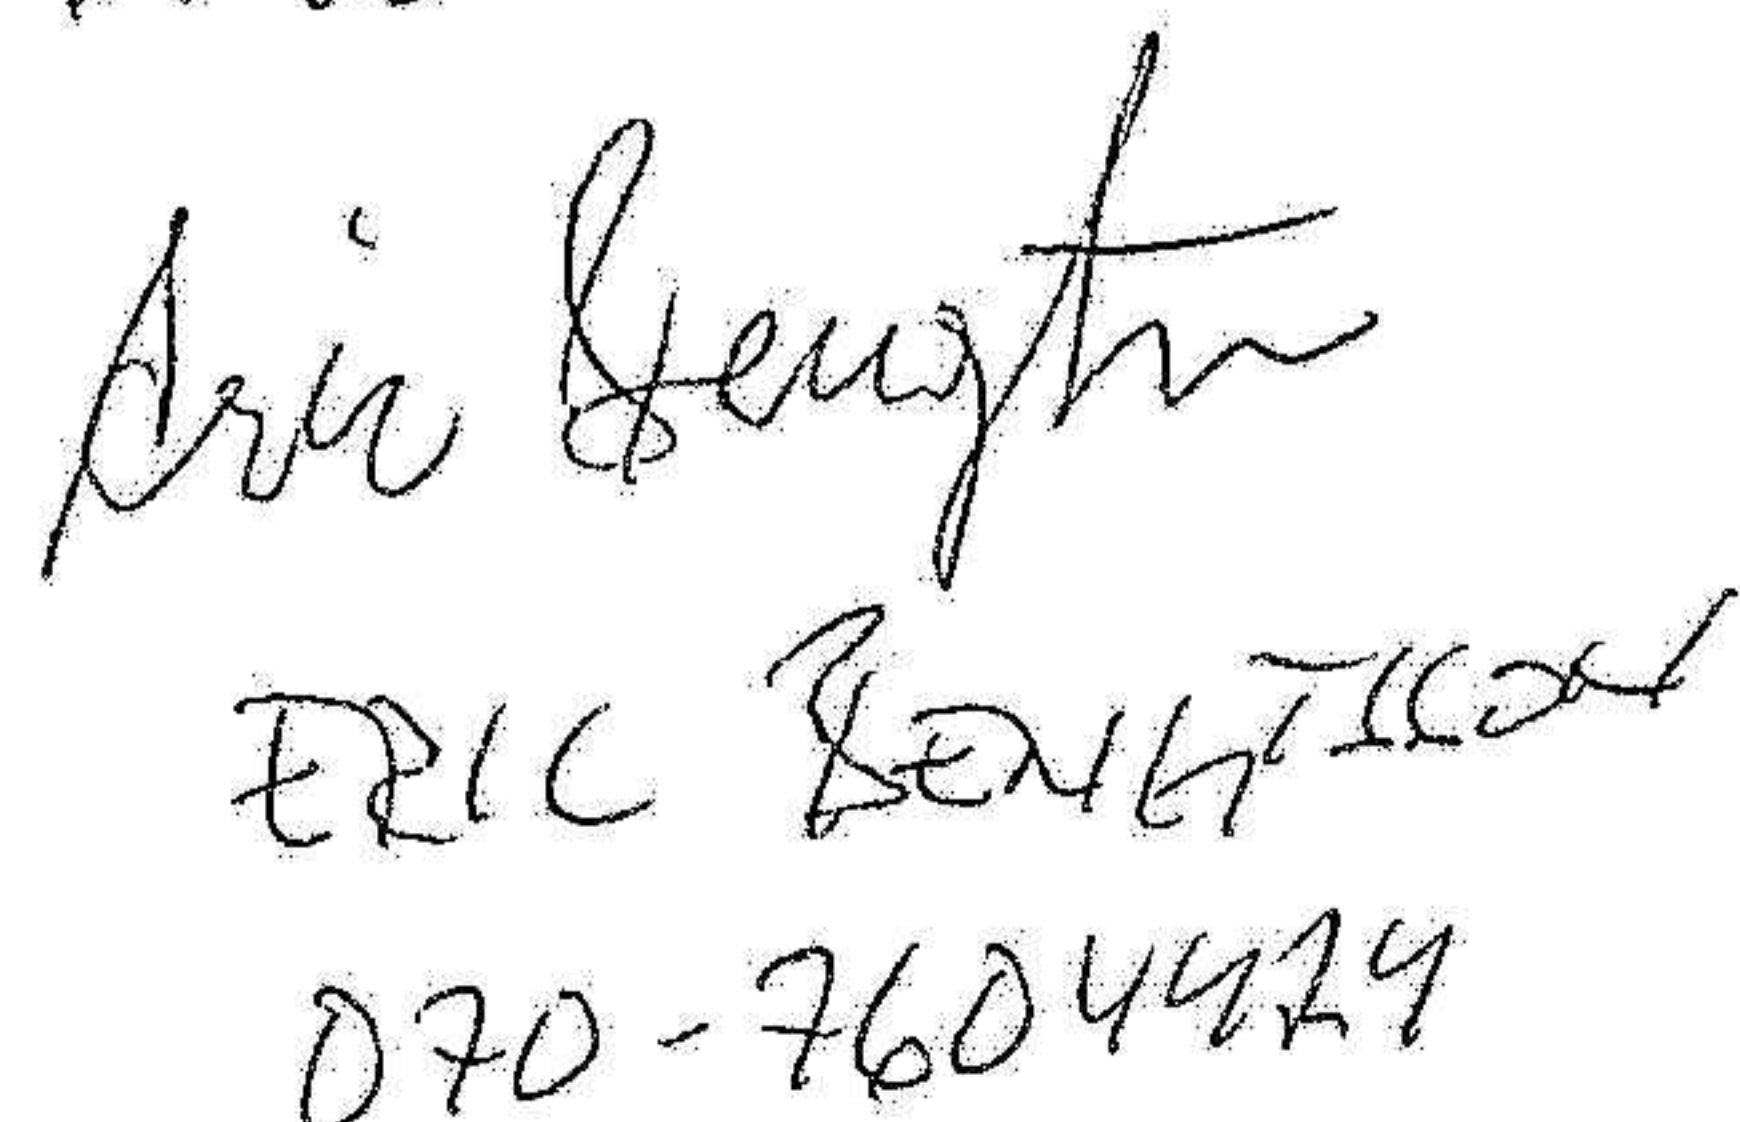 Eric Bengtsson
ERIC BENGTSSON
070-7604424